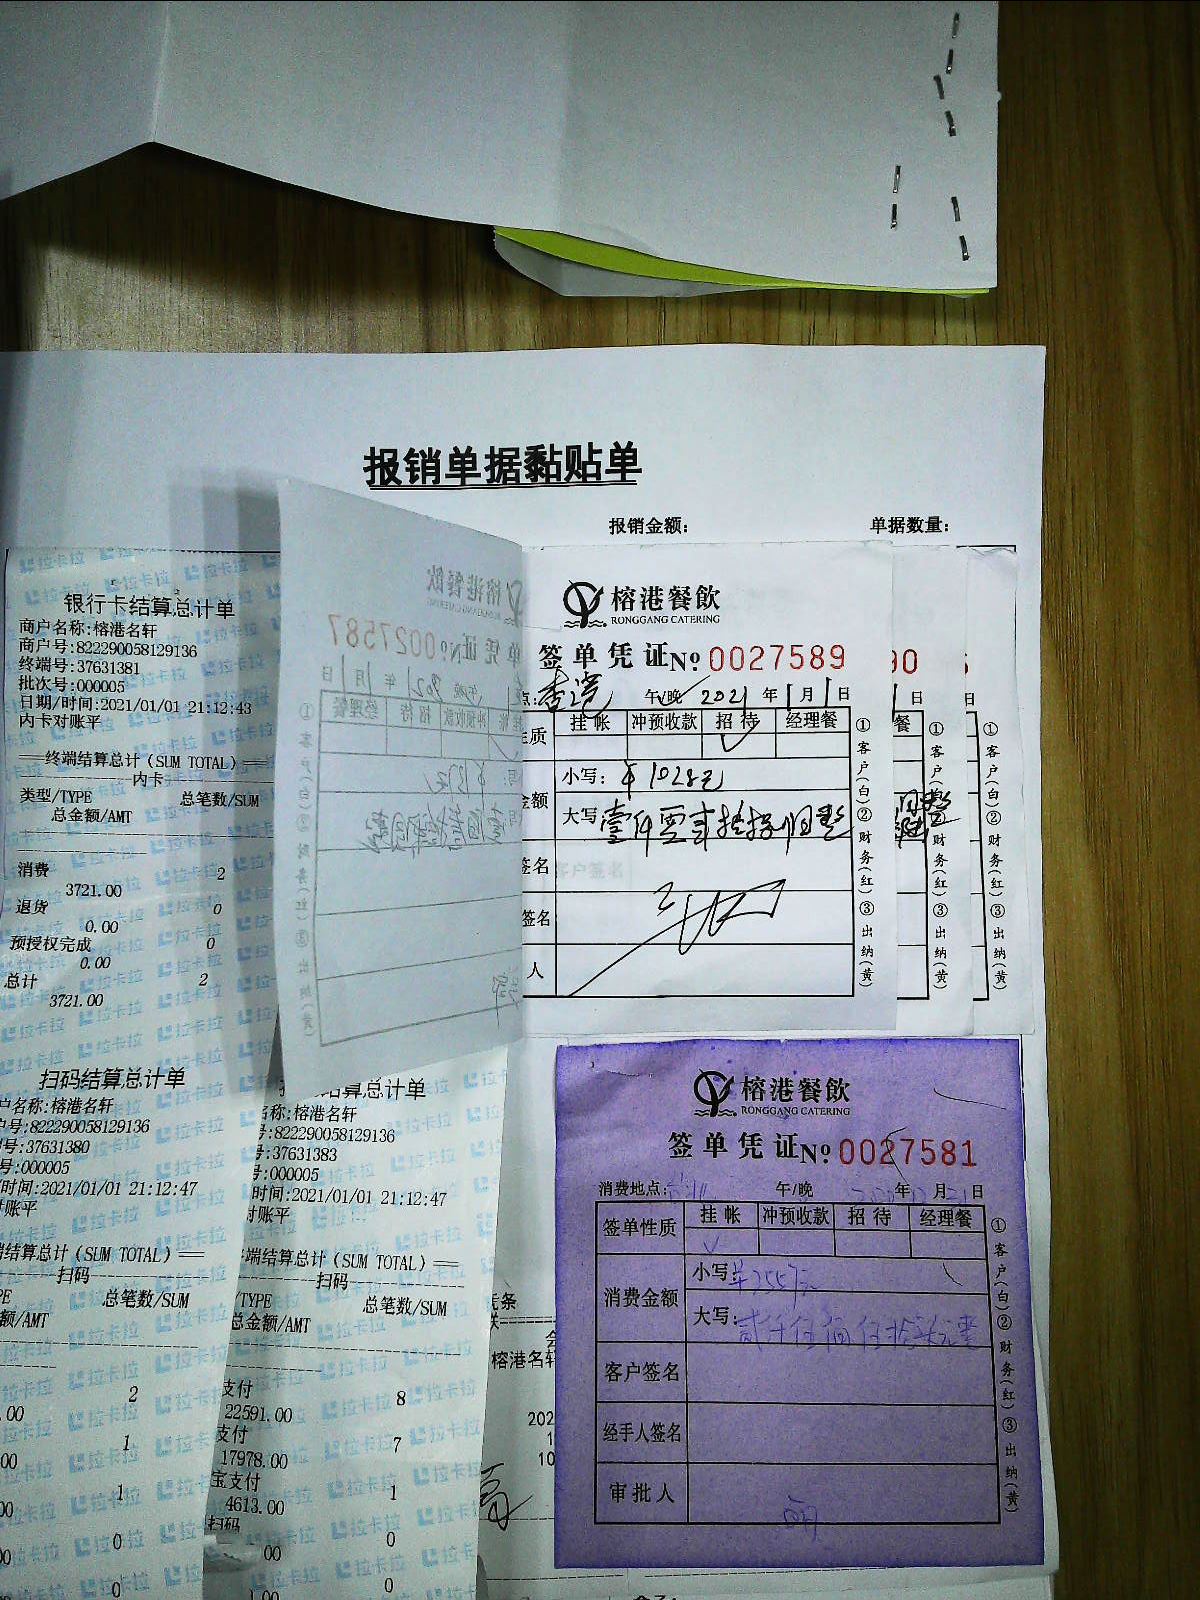 报销单据黏贴单
报销金额:
单据数量:
银行卡结算总计单
商户名称:榕港名轩
商户号:822290058129136
终端号:37631381
批次号:000005
日期/时间:2021/01/01 21:12:43
内卡对账平
终端结算总计(SUM TOTAL)
内卡
类型/TYPE 总笔数/SUM
总金额/AMT
消费 2
3721.00
退货 0
0.00
预授权完成 0
0.00
总计 2
3721.00
榕港餐飲
RONGGANG CATERING
单凭证№0027587
2021年1月1日
榕港餐飲
RONGGANG CATERING
签单凭证№ 0027589
午/晚 2021年1月1日
性质 挂帐 冲预收款 招待 经理餐
金额 小写: ¥1028元
大写
签名
签名
人
①客户(白)②财务(红)③出纳(黄)
90
日
餐
①客户(白)②财务(红)③出纳(黄)
日
①客户(白)②财务(红)③出纳(黄)
扫码结算总计单
户名称:榕港名轩
户号:822290058129136
号:37631380
号:000005
时间:2021/01/01 21:12:47
账平
结算总计(SUM TOTAL)
扫码
总笔数/SUM
额/AMT
2
.00
1
00
1
00
0
00
0
结算总计单
名称:榕港名轩
号:822290058129136
号:37631383
号:000005
时间:2021/01/01 21:12:47
对账平
端结算总计(SUM TOTAL)
扫码
/TYPE 总笔数/SUM
总金额/AMT
支付 8
22591.00
支付 7
17978.00
宝支付 1
4613.00
扫码 0
00
0
凭条
榕港名轩
202
榕港餐飲
RONGGANG CATERING
签单凭证№ 0027581
消费地点: 午/晚 年 月 日
签单性质 挂帐 冲预收款 招待 经理餐
消费金额 小写:
大写:
客户签名
经手人签名
审批人
①客户(白)②财务(红)③出纳(黄)